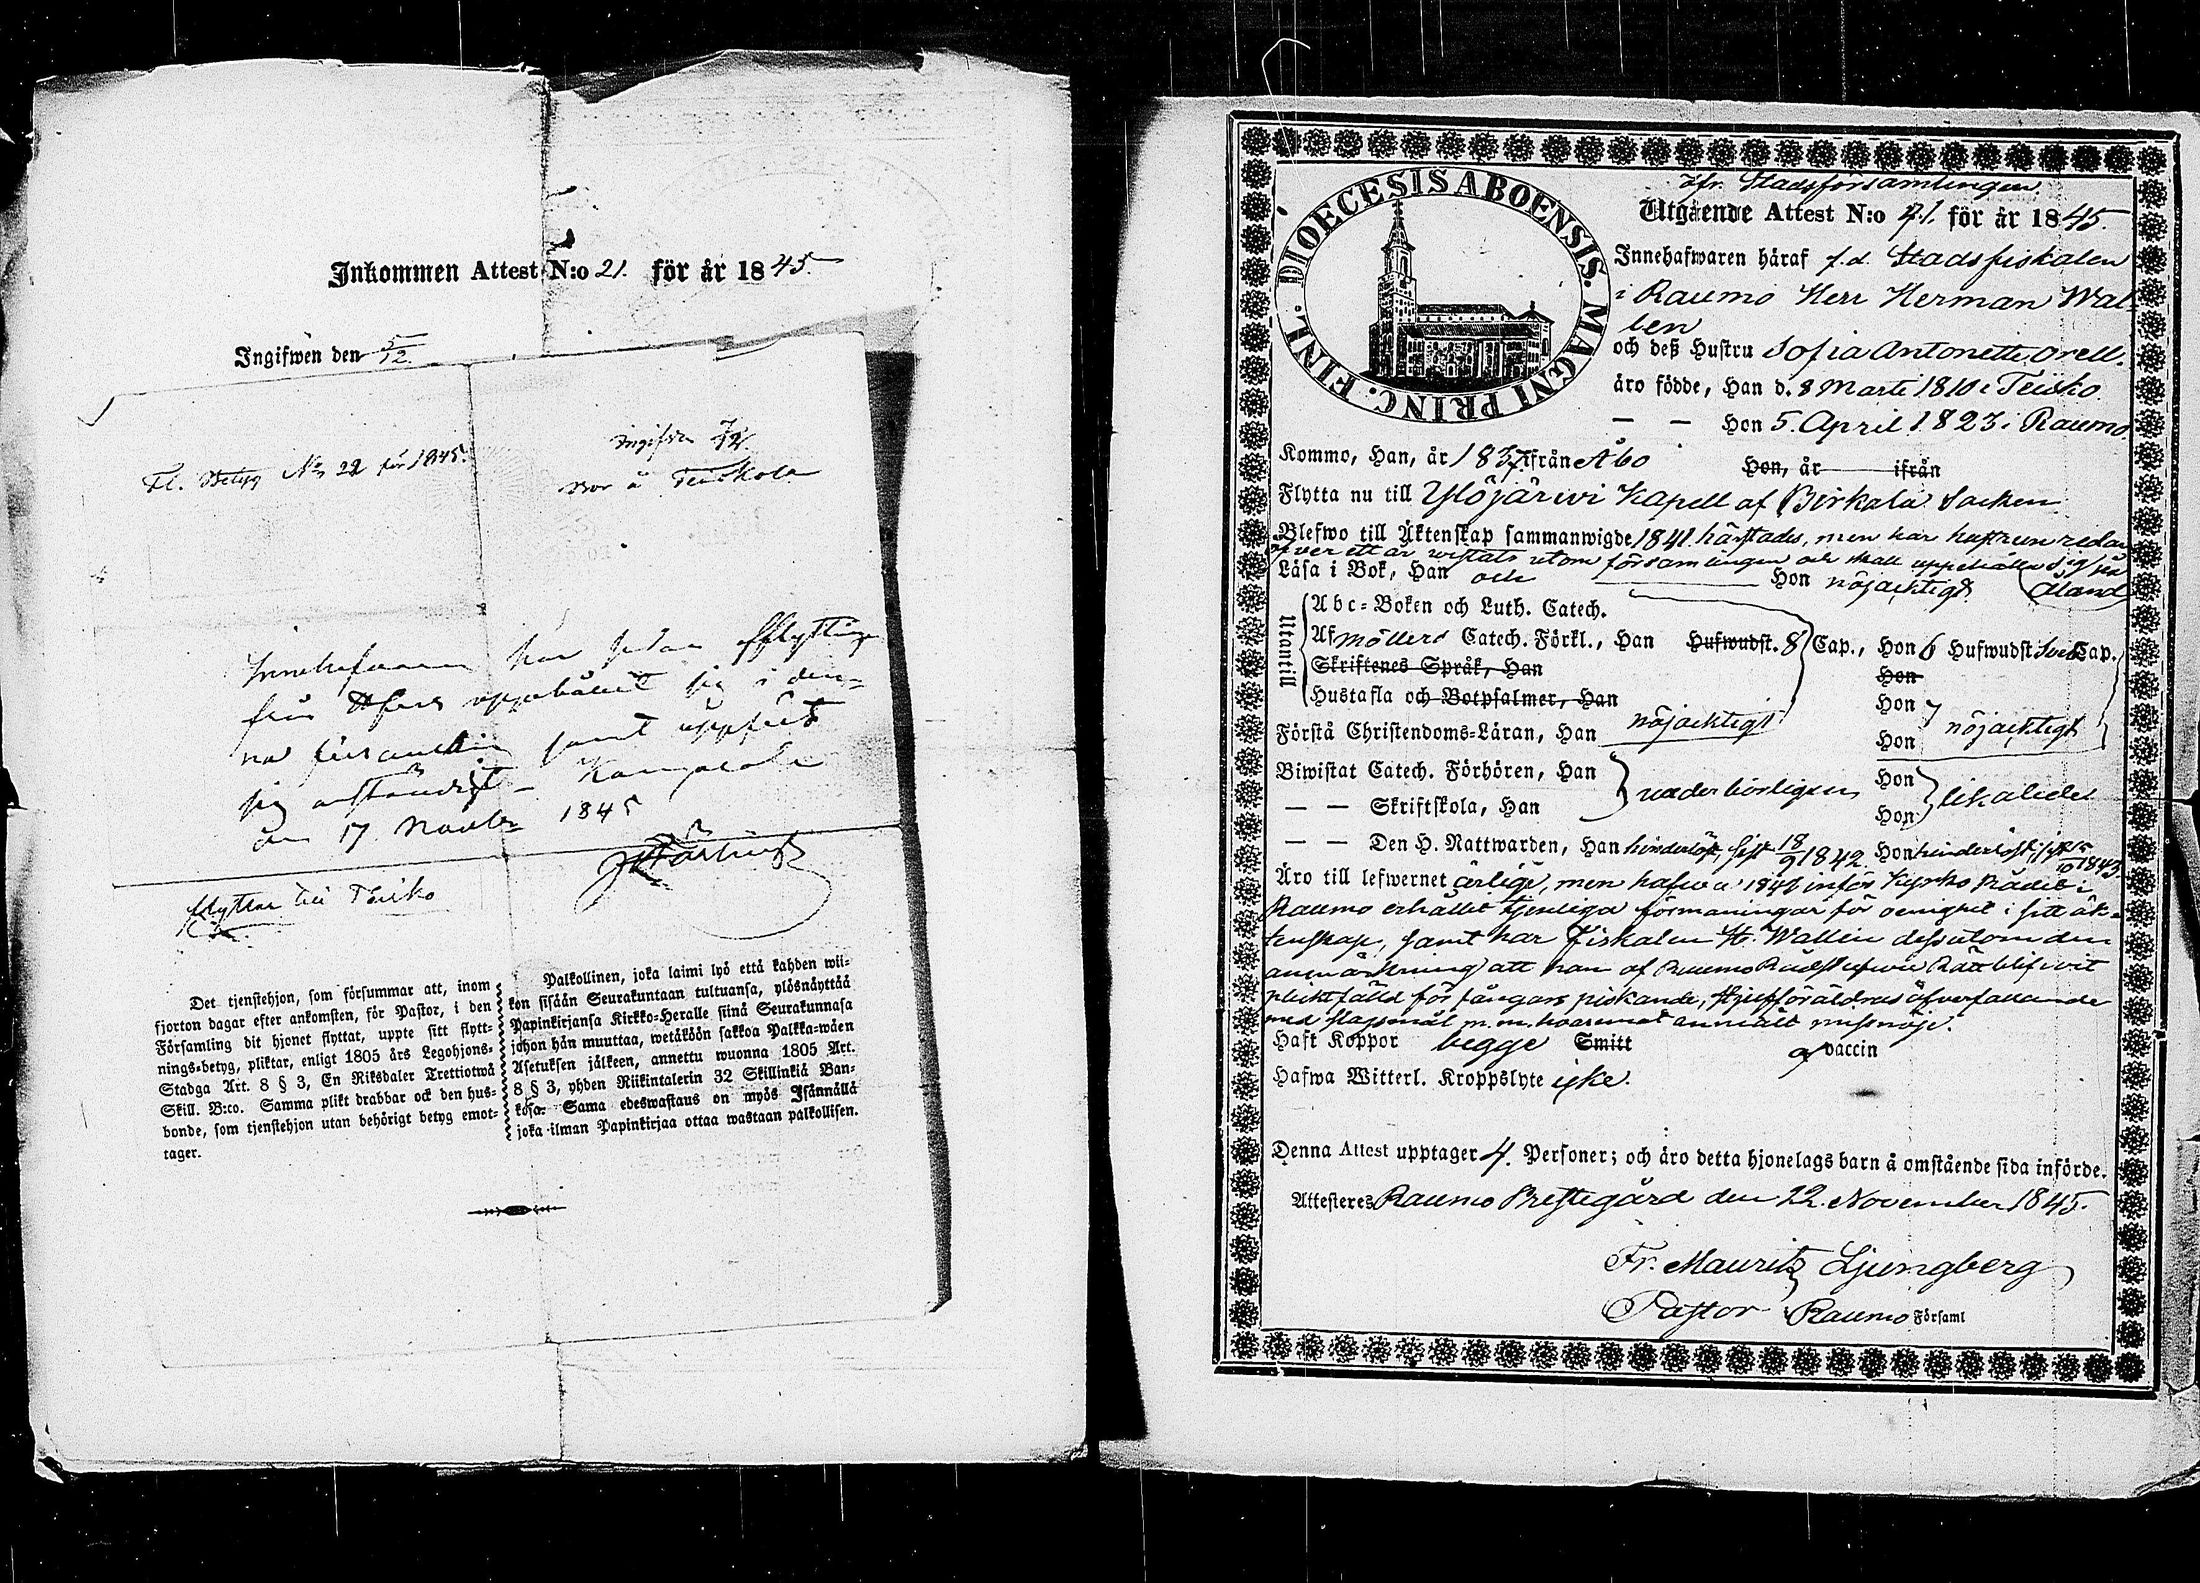 Inkommen Attest N:o 21. för år 1845.
Ingifwen den 5/12.
Fl. Betyg No 22 för 1845.
Ingifven 7/12
Bor å Teiskola
Innehafvaren har sedan afflyttning
från Åbo uppehållit sig i den-
na församling samt uppfört
sig anständigt. Kangasala
den 17 Novber 1845
flyttar till Teisko
Det tjenstehjon, som försummar att, inom
fjorton dagar efter ankomsten, för Pastor, i den
Församling dit hjonet flyttat, uppte sitt flytt-
nings-betyg, pliktar, enligt 1805 års Legohjons-
Stadga Art. 8 § 3, En Riksdaler Trettiotwå
Skill. B:co. Samma plikt drabbar ock den hus-
bonde, som tjenstehjon utan behörigt betyg emot-
tager.
Palkollinen, joka laimi lyö että kahden wii-
kon sisään Seurakuntaan tultuansa, ylösnäyttää
Papinkirjansa Kirkko-Heralle siinä Seurakunnasa
johon hän muuttaa, wetäköön sakkoa Palkka-wäen
Asetuksen jälkeen, annettu wuonna 1805 Art.
8 § 3, yhden Riikintalerin 32 Skillinkiä Ban-
kosa. Sama edeswastaus on myös Isännällä
joka ilman Papinkirjaa ottaa wastaan palkollisen.
DIOECESIS ABOENSIS. MAGNI PRINC. FINL.
Ifr. Stadsförsamlingen.
Utgående Attest N:o 71. för år 1845.
Innehafwaren häraf f.d. Stadsfiskalen
i Raumo Herr Herman Wal-
len
och deß Hustru Sofia Antonette Orell.
äro födde, Han d. 8 Martii 1810 i Teisko
— — Hon 5. April 1823 i Raumo.
Kommo, Han, år 1837 ifrån Åbo Hon, år ifrån
Flytta nu till Ylöjärwi Kapell af Birkala Socken
Blefwo till Äktenskap sammanwigde 1841. härstades, men har hustrun redan
öfver ett år wistats utom församlingen och skall uppehålla sig på
Läsa i Bok, Han och Hon nöjaktigt. (Åland)
Utantill
Abc-Boken och Luth. Catech.
Af Möllers Catech. Förkl., Han Hufwudst. 8 Cap., Hon 6 Hufwudst Cap.
Skriftenes Språk, Han Hon
Hustafla och Botpsalmer, Han Hon
Förstå Christendoms-Läran, Han nöjaktigt Hon nöjaktigt
Biwistat Catech. Förhören, Han Hon
— — Skriftskola, Han wederbörligen Hon likaledes
— — Den H. Nattwarden, Han hinderlöst, sist 18/9 1842 Hon hinderlöst, sist 15/10 1843.
Äro till lefwernet ärlige, men hafwa 1842 inför Kyrko Rådet i
Raumo erhållit tjenliga förmaningar för oenighet i sitt äk-
tenskap, samt har Fiskalen H. Wallen dessutom den
anmärkning att han af Raumo Rådstufwu Rätt blifwit
pliktfälld för fångars piskande, Styfföräldrars öfverfallande
med slagsmål m.m. hvaremot anmält missnöje.
Haft Koppor begge Smitt af vaccin
Hafwa Witterl. Kroppslyte icke.
Denna Attest upptager 4. Personer; och äro detta hjonelags barn å omstående sida införde.
Attesteres Raumo Prestegård den 22. November 1845.
Fr. Mauritz Ljungberg
Pastor i Raumo Församl